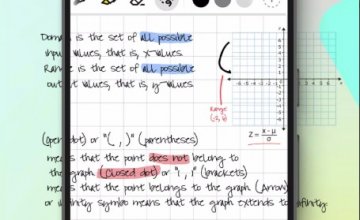 Domain is the set of all possible
input values, that is, x-values
Range is the set of all possible
output values, that is, y-values
Range
Z = x-μ / σ
(open dot) or "( , )" (parentheses)
means that the point does not belong to
the graph. (closed dot) or "[ , ]" (brackets)
means that the point belongs to the graph (Arrow)
or infinity symbo means that the graph extends to infinity